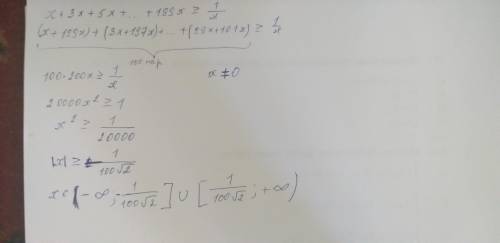 x + 3x + 5x + ... + 199x ≥ 1/x
(x + 199x) + (3x + 197x) + ... + (99x + 101x) ≥ 1/x
100 · 200x ≥ 1/x x ≠ 0
20000x² ≥ 1
x² ≥ 1/20000
|x| ≥ 1/100√2
x ∈ (-∞; -1/100√2] ∪ [1/100√2; +∞)